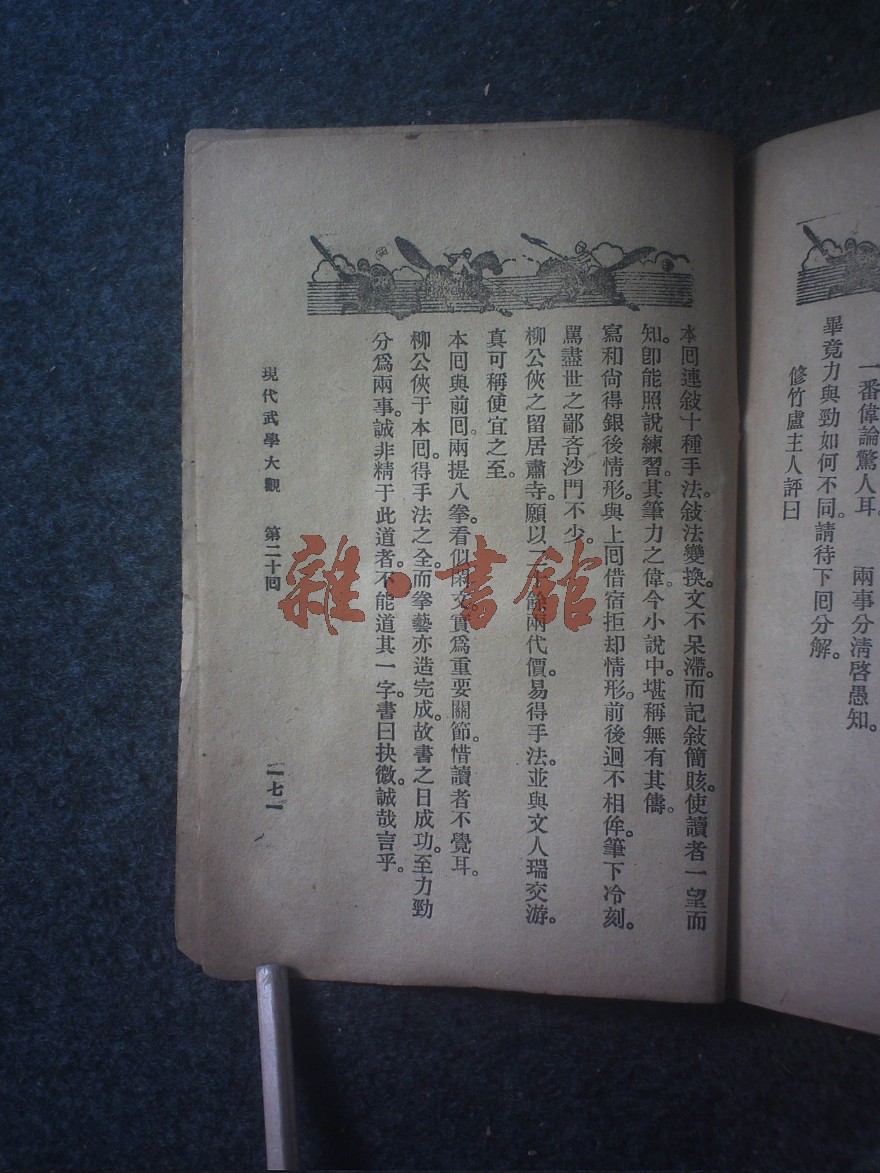 一番偉論驚人耳。 兩事分清啓愚知。
畢竟力與勁如何不同請待下回分解。
修竹盧主人評曰
本回連敍十種手法。敍法變換。文不呆滯。而記敍簡賅。使讀者一望而
知。卽能照說練習。其筆力之偉今小說中。堪稱無有其儔。
寫和尙得銀後情形。與上回借宿拒却情形。前後迥不相侔。筆下冷刻。
罵盡世之鄙吝沙門不少。
柳公俠之留居蕭寺。願以二十餘兩代價。易得手法。並與文人瑞交游。
真可稱便宜之至。
本回與前回。兩提八拳。看似閑文實爲重要關節。惜讀者不覺耳。
柳公俠于本回。得手法之全。而拳藝亦造完成。故書之曰成功。至力勁
分爲兩事。誠非精于此道者。不能道其一字。書曰抉微。誠哉言乎。
現代武學大觀 第二十回 一七一
雜·書館